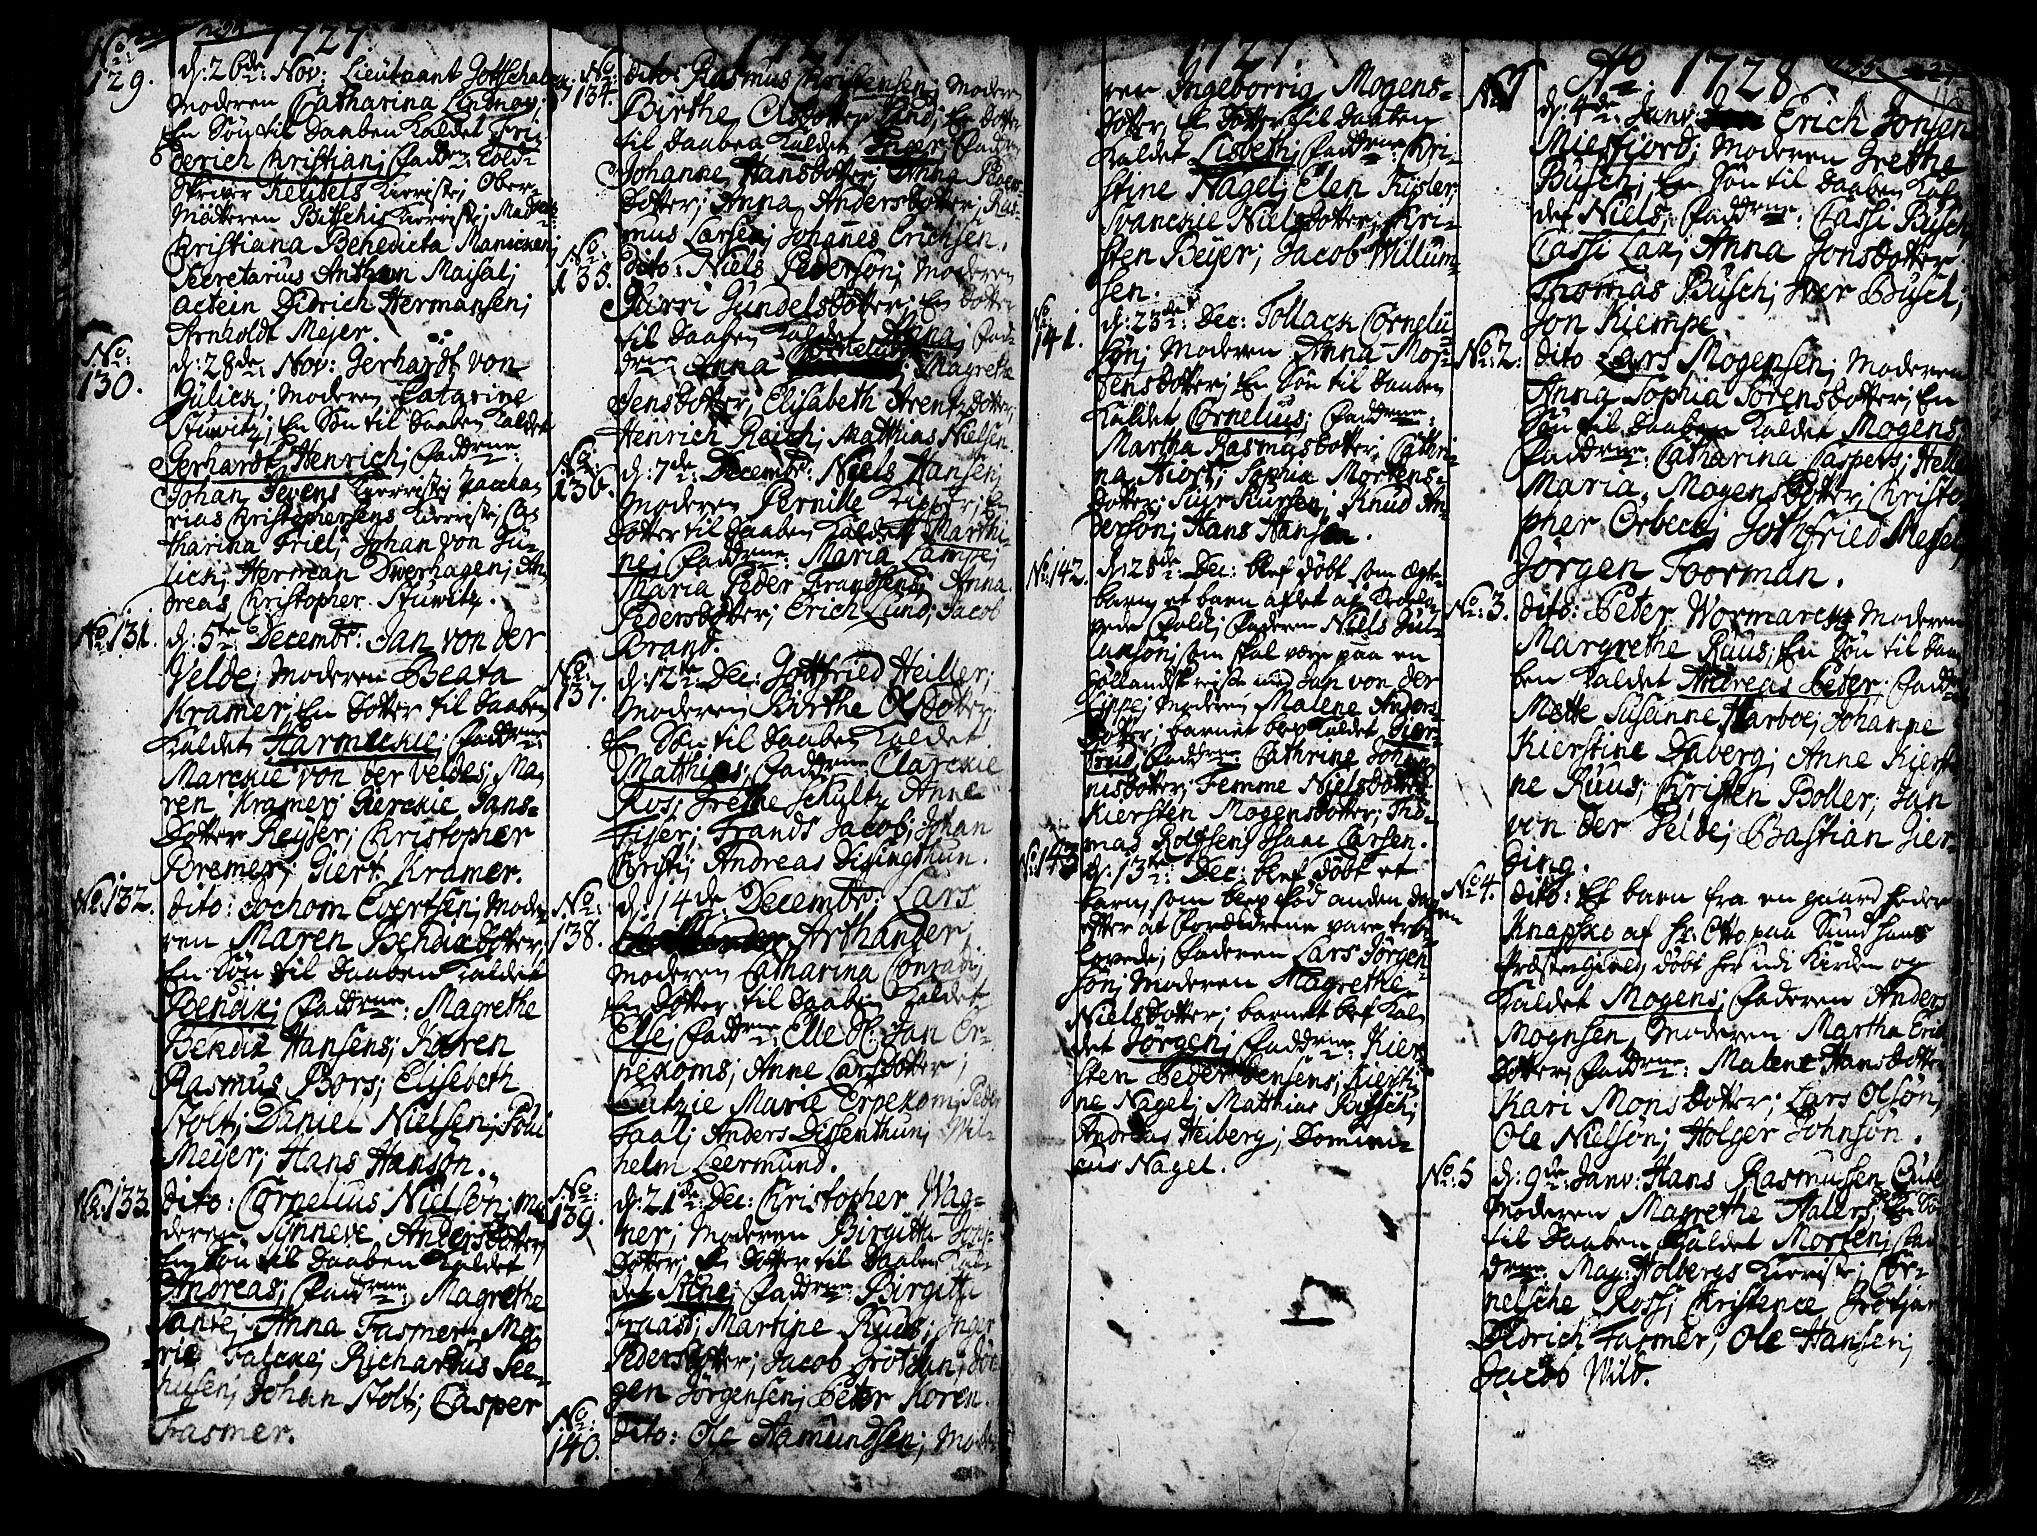 1727.
No: 129.
d: 26de: Nov: Lieutnant Gottschalck
Moderen Catharina Lindnoy;
En Søn til Daaben kaldet Fri-
derich Christian; Faddrne: Told-
skriver Reutels Kierriste; Ober-
Christiana Benedicta Manicken;
Secretarius Anthon Maisal;
Didrich Hermansen;
Arnholdt Mejer.
No: 130.
d: 28de: Nov: Gerhardt von
Jülich; Moderen Catarine
Stuwitz; En Søn til Daaben kaldet
Gerhardt Henrich; Faddrne:
Johan Jevens Kierriste; Zacha-
rias Christophersens Kierriste; Ca-
tharina Friel; Johan von Jü-
lich; Herman Dwerhagen; An-
dreas Christopher Stuwitz.
No: 131.
d: 5te Decembr: Jan von der
Velde; Moderen Beata
Kramer; En Dotter til Daaben
kaldet Harmeckie; Faddrne
Marckie von der Veldes; Ma-
ren Kramer; Gierckie Jans-
Dotter Reyser; Christopher
Bremer; Giert Kramer.
No: 132.
Dito: Jochom Evertsen; Mode-
ren Maren Bendixdotter;
En Søn til Daaben kaldet
Bendix; Faddrne: Magrethe
Bendix Hansens; Karen
Rasmus Bors; Elisebeth
Stolt; Daniel Nielsen; Povl
Meyer; Hans Hanson.
No: 133.
Dito: Cornelius Nielsøn; Mo-
deren Synneve Andersdotter;
En Søn til Daaben kaldet
Andreas; Faddrne: Magrethe
Anna Fasmer; Ma-
rie Falcke; Richardus See-
husen; Johan Stolt; Casper
Fasmer.
1727
No: 134.
Dito: Rasmus Christensen; Modren
Birthe Olsdotter Lund; En Dotter
til Daaben kaldet Inger; Faddr:
Johanne Hansdotter; Anna Peder
Dotter; Anna Andersdotter; Ras-
mus Larsen; Johannes Erichsen.
No: 135.
Dito: Niels Pedersøn; Moderen
Siirri Gundelsdotter; En Dotter
til Daaben kaldet Anna; Fad-
drne: Anna Cornelius: Magrethe
Jensdotter; Elisabeth Arentzdotter;
Henrich Reich; Matthias Nielsen.
No: 136.
d: 7de: Decembr: Niels Hansen;
Moderen Pernille; En
Dotter til Daaben kaldet Marthi-
ne; Faddrne: Maria Lampe;
Maria Peder Frandsens; Anna
Pedersdotter; Erich Lund; Jacob
Brand.
No: 137.
d: 12te Dec: Gottfried Heiller;
Moderen Birthe Olsdotter
En Søn til Daaben kaldet
Matthias; Faddrne: Clarckie
Ros; Grethe Schultz Anne
Fiser; Frands Jacob; Johan
Christi; Andreas Disingthun.
No: 138.
d: 14de: Decembr: Lars
Arthander;
Moderen Catharina Conradi;
En Dotter til Daaben kaldet
Else; Faddrne: Elle Ol: Jan Er-
pekoms; Anne Larsdotter;
Lutzie Marie Erpekom; Peder
Faal; Anders Dissenthun; Wil-
helm Leermund.
No: 139.
d: 21de: Dec: Christopher Wag-
ner; Moderen Birgitta Jons-
Dotter; En Dotter til Daaben kal-
det Stine; Faddrne: Birgitte
Fraas; Martine Ruds; Inger
Pedersdotter; Jacob Grotchan; Jør-
gen Jørgensen; Peter Koren.
No: 140.
Dito: Ole Aamundsen; Mode-
1727.
ren Ingeborrig Mogens-
Dotter; En Dotter til Daaben
kaldet Lisbeth; Faddrne: Chri-
stine Nagel; Elen Fisler;
Svanckie Nielsdotter; Chri-
sten Beyer; Jacob Willum-
sen.
No: 141.
d: 23de: Dec: Tollack Corneliu-
søn; Moderen Anna Mor-
tensdotter; En Søn til Daaben
kaldet Cornelius; Faddrne:
Martha Rasmusdotter; Cathri-
na Hiort; Sophia Mortens-
Dotter; Siur Siursen; Knud An-
dersøn; Hans Hansen.
No: 142.
d: 28de: Dec: blef døbt som Ægte-
barn et barn aflet af Trolo-
vede Folk; Faderen Niels Jul-
iansøn; som skal være paa en
Hollandsk reise med Jan von der
Lippe; Moderen Malene Anders-
Dotter; barnet blef kaldet Gier-
trud; Faddrne: Cathrine Johan-
nisdotter; Femme Nielsdotter
Kiersten Mogensdotter; Tho-
mas Rolfsen; Isaac Larsen.
No: 143
d: 13te: Dec: blef døbt et
barn, som blef fød anden dagen
efter at Forældrene vare tro-
lovede; Faderen Lars Jørgen-
søn; Moderen Magrethe
Nielsdotter; barnet blef kal-
det Jørgen; Faddrne: Kier-
sten Peder Jensens; Kiersti-
ne Nagel; Matthias Büssch;
Andreas Heiberg; Domini-
cus Nagel.
Ao: 1728
No: 1
d: 4de: Janv: Erich Jonsen
Miesfjord; Moderen Grethe
Busch; En Søn til Daaben kal-
det Niels; Faddrne: Cassi Busch
Cassi Lax; Anna Jonsdotter
Thomas Busch; Iver Busch;
Jon Kiempe.
No: 2:
Dito Lars Mogensen; Moderen
Anna Sophia Sørensdotter; En
Søn til Daaben kaldet Mogens;
Faddrne: Catharina Caspers; Helle
Maria Mogensdotter; Christo-
pher Orbeck; Gothfried Messel;
Jørgen Foorman.
No: 3.
Dito: Peter Wormarck; Moderen
Margrethe Ruus; En Søn til Daa-
ben kaldet Andreas Peter; Faddrne
Mette Susanne Harboe; Johanne
Kierstine Daberg; Anne Kiersti-
ne Ruus; Christen Boller; Jan
von der Velde; Bastian Gier-
ding.
No: 4.
Dito: Et barn fra en gaard heder
Knapsko af Hr: Otto paa Sund hans
Præstegield, døbt her udi Kirken og
kaldet Mogens; Faderen Anders
Mognsen, Moderen Martha Erichs
Dotter; Faddrne: Malene Hansdotter
Kari Monsdotter; Lars Olsøn;
Ole Nielsøn; Holger Johnsøn.
No: 5
d: 9de: Janv: Hans Rasmussen
Moderen Magrethe Aalers; En Søn
til Daaben kaldet Morten; Fad-
drne: Mag: Holbergs Kierriste; Cor-
nelsche Ross; Christence Grotjan
Didrich Fasmer; Ole Hansen;
Jacob Wild.